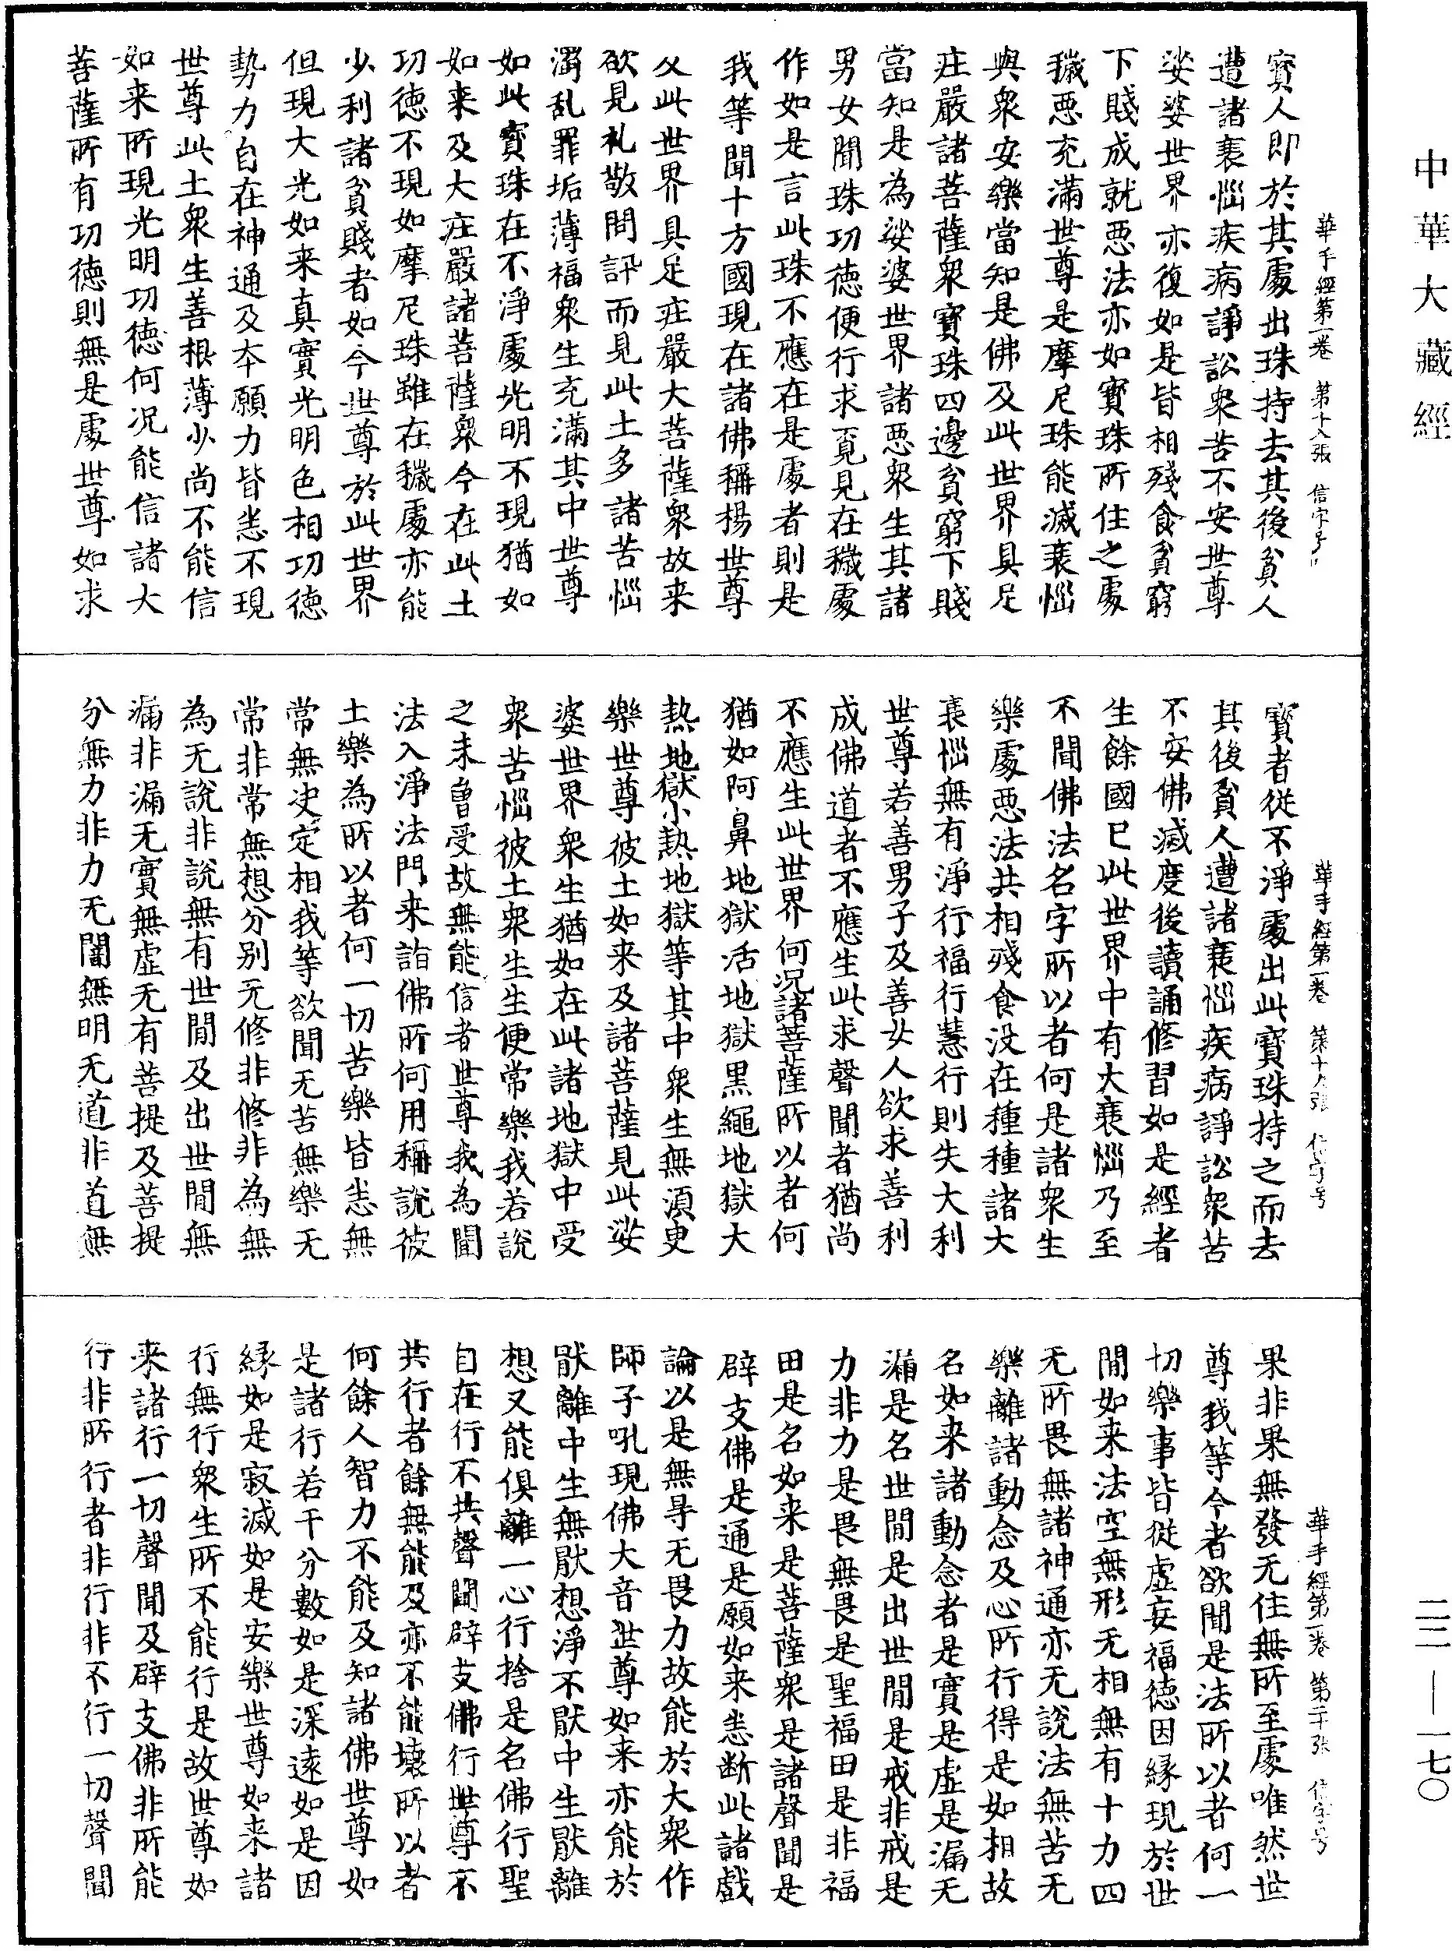 中華大藏經
二二—一七〇
華手經第一卷 第十八張 信字号
寳人即於其處出珠持去其後貧人
遭諸衰惱疾病諍訟衆苦不安世尊
娑婆世界亦復如是皆相殘食貧窮
下賤成就惡法亦如寳珠所住之處
穢惡充滿世尊是摩尼珠能滅衰惱
與衆安樂當知是佛及此世界具足
莊嚴諸菩薩衆寳珠四邊貧窮下賤
當知是為娑婆世界諸惡衆生其諸
男女聞珠功德便行求覓見在穢處
作如是言此珠不應在是處者則是
我等聞十方國現在諸佛稱揚世尊
父此世界具足莊嚴大菩薩衆故来
欲見礼敬問訊而見此土多諸苦惱
濁乱罪垢薄福衆生充滿其中世尊
如此寳珠在不淨處光明不現猶如
如来及大莊嚴諸菩薩衆今在此土
功德不現如摩尼珠雖在穢處亦能
少利諸貧賤者如今世尊於此世界
但現大光如来真實光明色相功德
勢力自在神通及本願力皆悉不現
世尊此土衆生善根薄少尚不能信
如来所現光明功德何况能信諸大
菩薩所有功德則無是處世尊如求
華手經第一卷 第十九張 信字号
寳者從不淨處出此寳珠持之而去
其後貧人遭諸衰惱疾病諍訟衆苦
不安佛滅度後讀誦修習如是經者
生餘國已此世界中有大衰惱乃至
不聞佛法名字所以者何是諸衆生
樂處惡法共相殘食没在種種諸大
衰惱無有淨行福行慧行則失大利
世尊若善男子及善女人欲求善利
成佛道者不應生此求聲聞者猶尚
不應生此世界何况諸菩薩所以者何
猶如阿鼻地獄活地獄黑繩地獄大
熱地獄小熱地獄等其中衆生無須臾
樂世尊彼土如来及諸菩薩見此娑
婆世界衆生猶如在此諸地獄中受
衆苦惱彼土衆生生便常樂我若說
之未曾受故無能信者世尊我為聞
法入淨法門来詣佛所何用稱說彼
土樂為所以者何一切苦樂皆悉無
常無决定相我等欲聞无苦無樂无
常非常無想分别无修非修非為無
為无說非說無有世間及出世間無
漏非漏无實無虛无有菩提及菩提
分無力非力无闇無明无道非道無
華手經第一卷 第二十張 信字号
果非果無發无住無所至處唯然世
尊我等今者欲聞是法所以者何一
切樂事皆從虛妄福德因緣現於世
間如来法空無形无相無有十力四
无所畏無諸神通亦无說法無苦无
樂離諸動念及心所行得是如相故
名如来諸動念者是實是虛是漏无
漏是名世間是出世間是戒非戒是
力非力是畏無畏是聖福田是非福
田是名如来是菩薩衆是諸聲聞是
辟支佛是通是願如来悉断此諸戲
論以是無㝵无畏力故能於大衆作
師子吼現佛大音世尊如来亦能於
厭離中生無厭想淨不厭中生厭離
想又能俱離一心行捨是名佛行聖
自在行不共聲聞辟支佛行世尊不
共行者餘無能及亦不能壞所以者
何餘人智力不能及知諸佛世尊如
是諸行若干分數如是深遠如是因
緣如是寂滅如是安樂世尊如来諸
行無行衆生所不能行是故世尊如
来諸行一切聲聞及辟支佛非所能
行非所行者非行非不行一切聲聞